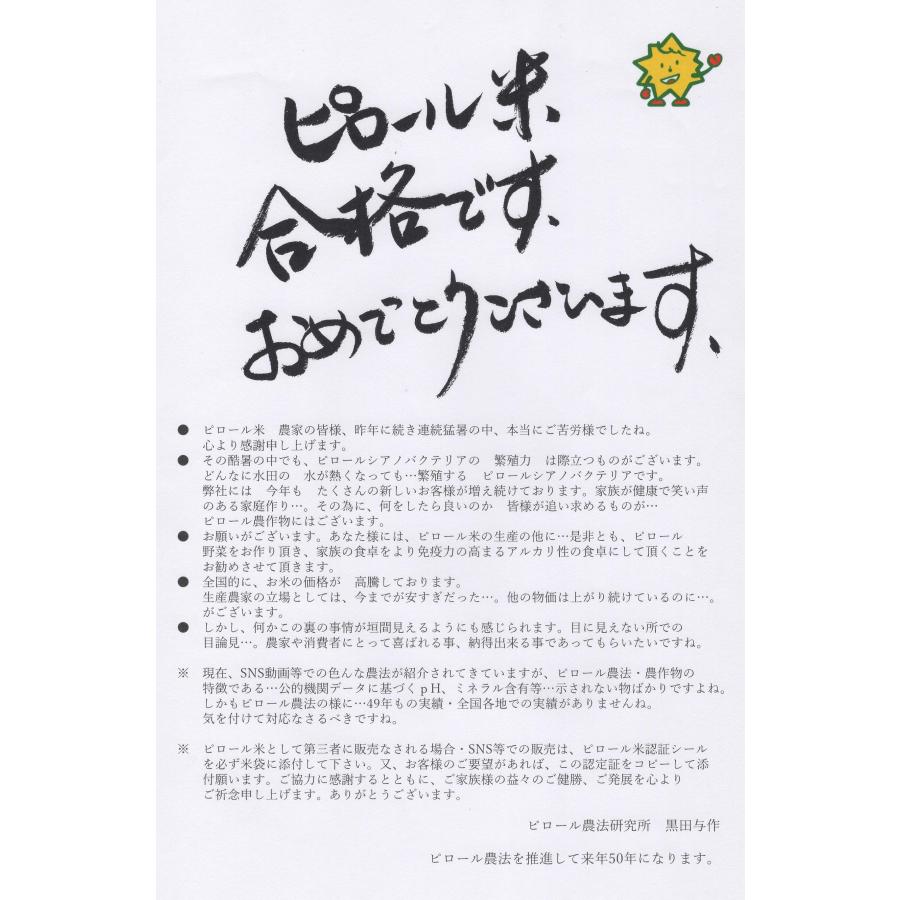 ピロール米
合格です、
おめでとうございます、
● ピロール米　農家の皆様、昨年に続き連続猛暑の中、本当にご苦労様でしたね。
心より感謝申し上げます。
● その酷暑の中でも、ピロールシアノバクテリアの　繁殖力　は際立つものがございます。
どんなに水田の　水が熱くなっても…繁殖する　ピロールシアノバクテリアです。
弊社には　今年も　たくさんの新しいお客様が増え続けております。家族が健康で笑い声
のある家庭作り…。その為に、何をしたら良いのか　皆様が追い求めるものが…
ピロール農作物にはございます。
● お願いがございます。あなた様には、ピロール米の生産の他に…是非とも、ピロール
野菜をお作り頂き、家族の食卓をより免疫力の高まるアルカリ性の食卓にして頂くことを
お勧めさせて頂きます。
● 全国的に、お米の価格が　高騰しております。
生産農家の立場としては、今までが安すぎだった…。他の物価は上がり続けているのに…。
がございます。
● しかし、何かこの裏の事情が垣間見えるようにも感じられます。目に見えない所での
目論見…。農家や消費者にとって喜ばれる事、納得出来る事であってもらいたいですね。
※ 現在、SNS動画等での色んな農法が紹介されてきていますが、ピロール農法・農作物の
特徴である…公的機関データに基づくｐH、ミネラル含有等…示されない物ばかりですよね。
しかもピロール農法の様に…49年もの実績・全国各地での実績がありませんね。
気を付けて対応なさるべきですね。
※ ピロール米として第三者に販売なされる場合・SNS等での販売は、ピロール米認証シール
を必ず米袋に添付して下さい。又、お客様のご要望があれば、この認定証をコピーして添
付願います。ご協力に感謝するとともに、ご家族様の益々のご健勝、ご発展を心より
ご祈念申し上げます。ありがとうございます。
ピロール農法研究所　黒田与作
ピロール農法を推進して来年50年になります。